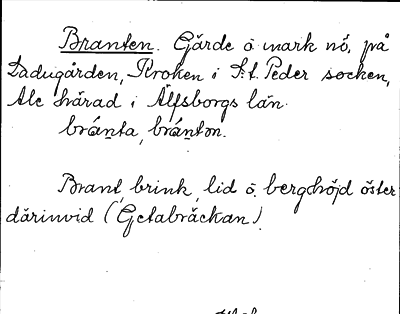 Branten. Gärde o. mark nö. på
Ladugården, Kroken i S:t. Peder socken,
Ale härad i Älfsborgs län.
bránta, brántон.
Brant, brink, lid o. bergshöjd öster
därinvid (Getabräckan).